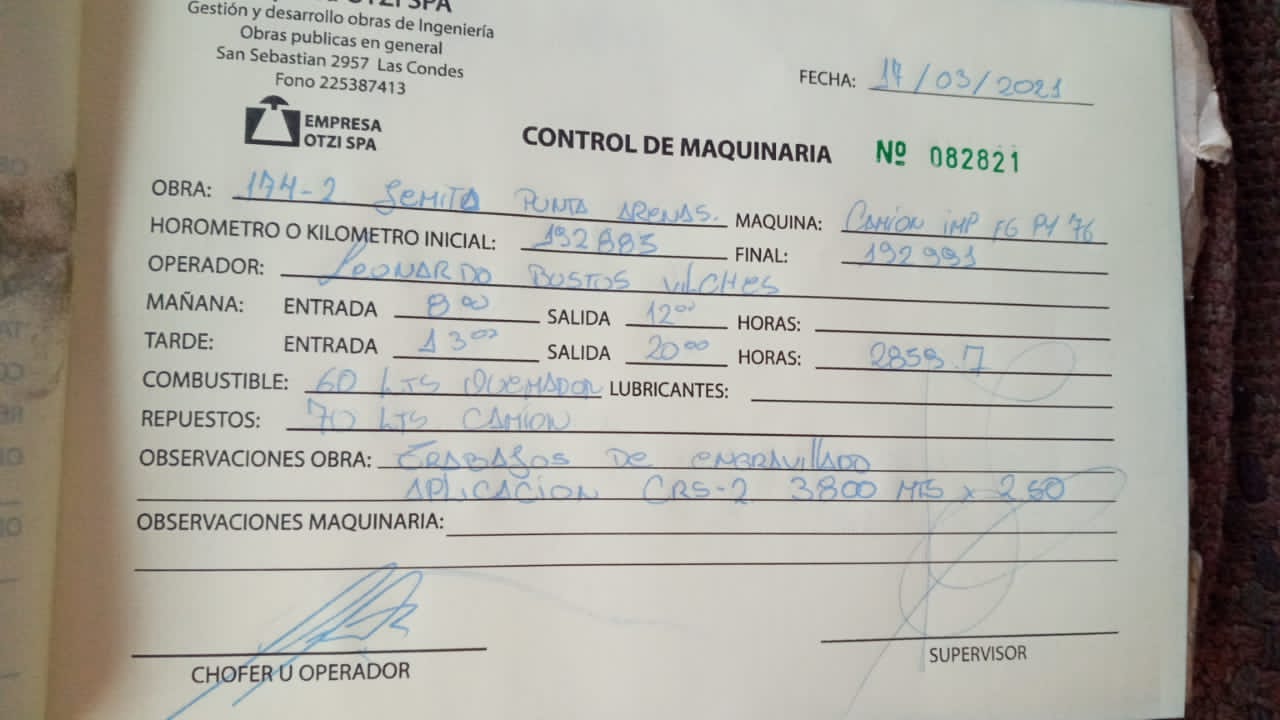 OTZI SPA
Gestión y desarrollo obras de Ingeniería
Obras publicas en general
San Sebastian 2957 Las Condes
Fono 225387413
EMPRESA
OTZI SPA
FECHA: 17/03/2021
CONTROL DE MAQUINARIA Nº 082821
OBRA: 174-2 SEMITA PUNTA ARENAS. MAQUINA: CAMION IMP FG PY 76
HOROMETRO O KILOMETRO INICIAL: 192885 FINAL: 192991
OPERADOR: LEONARDO BUSTOS VILCHES
MAÑANA: ENTRADA 8 00 SALIDA 12 00 HORAS:
TARDE: ENTRADA 13 00 SALIDA 20 00 HORAS: 2859.7
COMBUSTIBLE: 60 LTS QUEMADOR LUBRICANTES:
REPUESTOS: 70 LTS CAMION
OBSERVACIONES OBRA: TRABAJOS DE ENGRAVILLADO
APLICACION CRS-2 3800 MTS x 2.50
OBSERVACIONES MAQUINARIA:
CHOFER U OPERADOR
SUPERVISOR